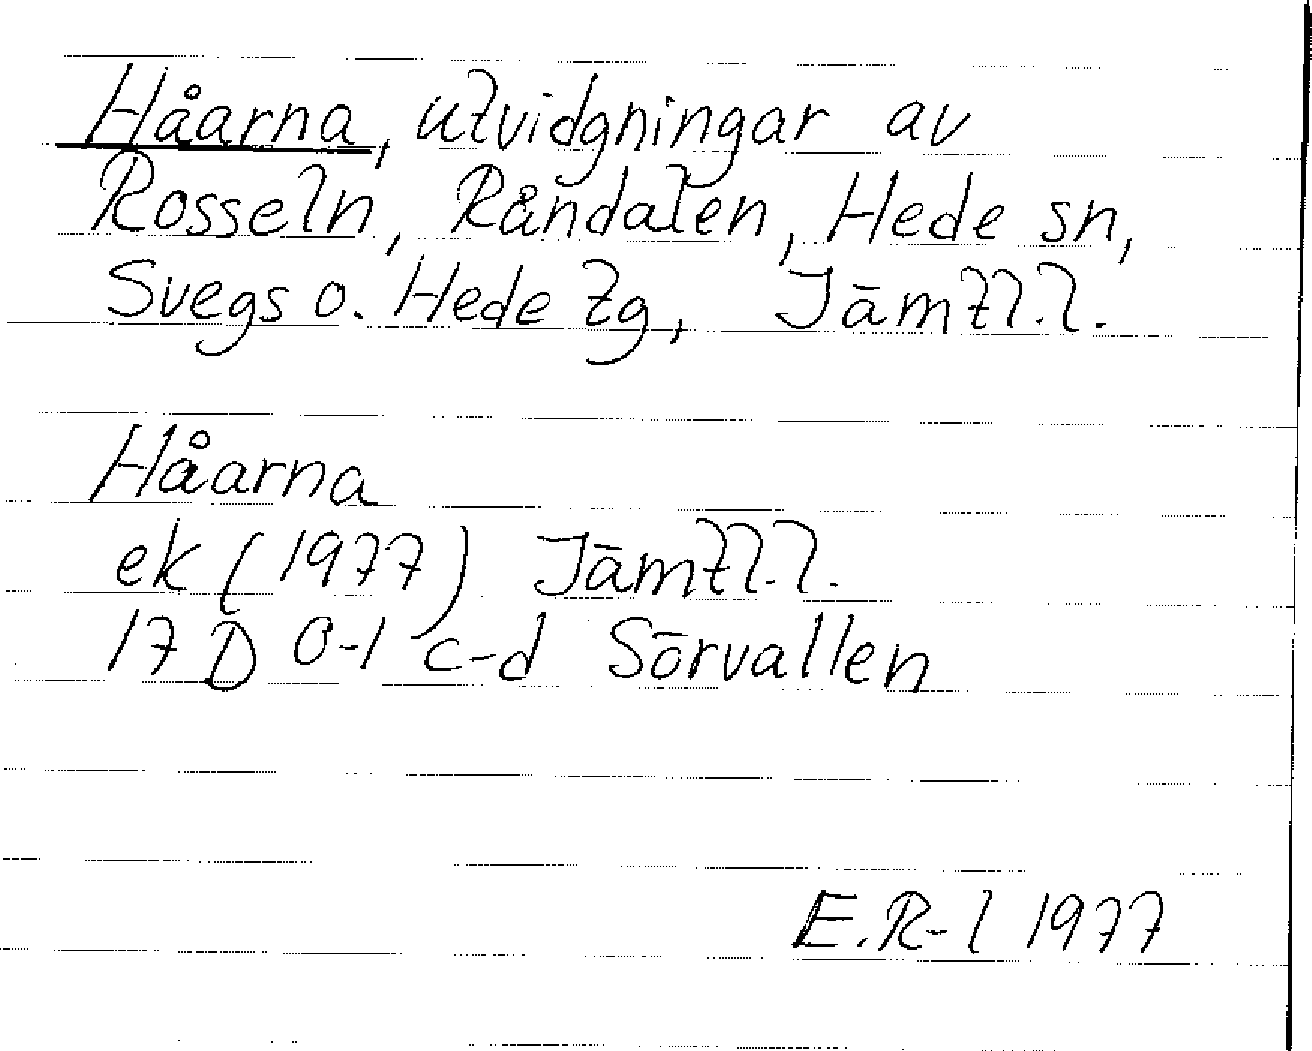 Håarna, utvidgningar av
Rosseln, Råndalen, Hede sn,
Svegs o. Hede tg, Jämtl.l.
Håarna
ek (1977) Jämtl.l.
17 D 0-1 c-d Sörvallen
E.R-l 1977